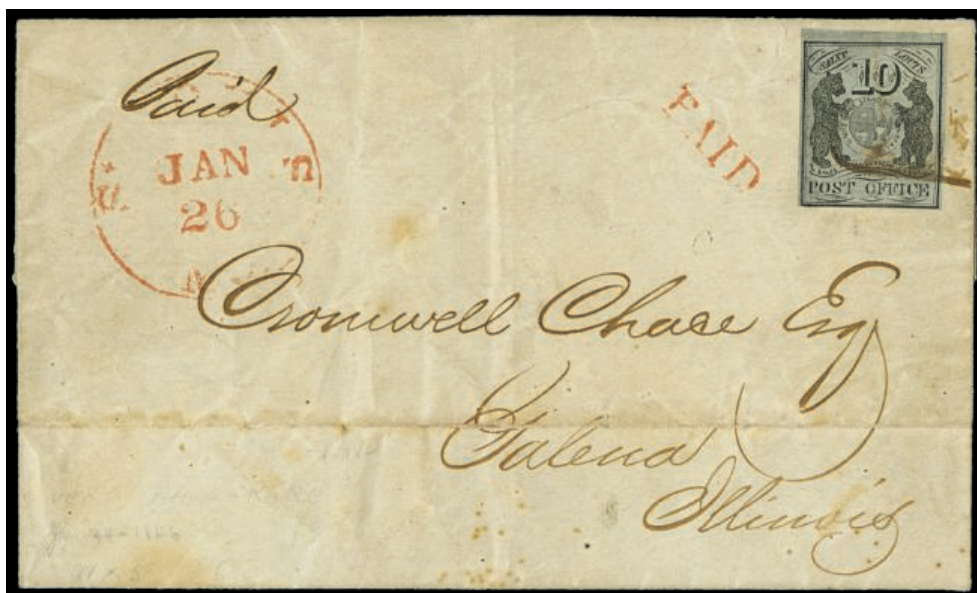 Paid
JAN
26
PAID
SAINT LOUIS
10
POST OFFICE
Cromwell Chase Esq
Galena
Illinois